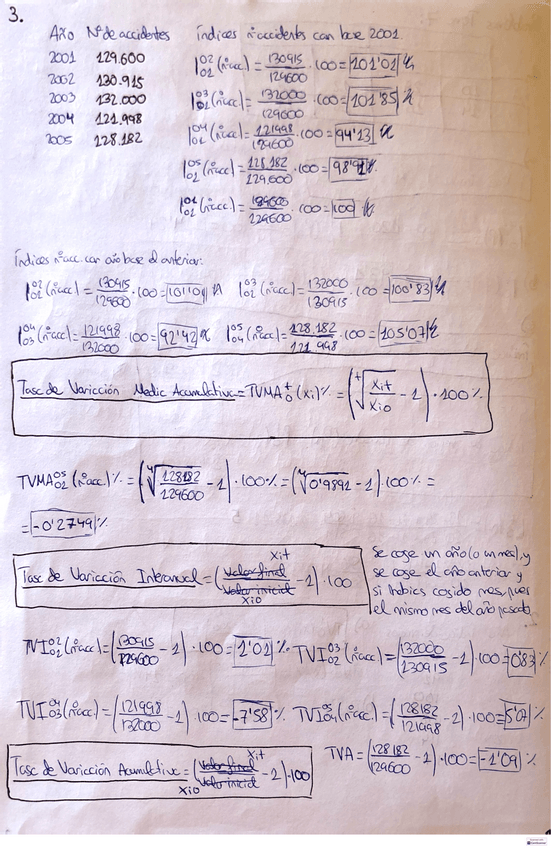 3.
Año Nº de accidentes Índices nºaccidentes con base 2001.
2001 129.600
2002 130.915
2003 132.000
2004 121.998
2005 128.182
I 02 01 (nºacc.) = 130915/129600 · 100 = 101'01 %
I 03 01 (nºacc.) = 132000/129600 · 100 = 101'85 %
I 04 01 (nºacc.) = 121998/129600 · 100 = 94'13 %
I 05 01 (nºacc.) = 128.182/129.600 · 100 = 98'91 %
I 01 01 (nºacc.) = 129600/129600 · 100 = 100 %
Índices nºacc. con año base el anterior:
I 02 01 (nºacc.) = 130915/129600 · 100 = 101'01 % I 03 02 (nºacc.) = 132000/130915 · 100 = 100'83 %
I 04 03 (nºacc.) = 121998/132000 · 100 = 92'42 % I 05 04 (nºacc.) = 128.182/121.998 · 100 = 105'07 %
Tasa de Variación Media Acumulativa = TVMA t 0 (xi)% = (t√(xit/xio) - 1) · 100 %
TVMA 05 01 (nºacc.) % = (4√(128182/129600) - 1) · 100 % = (4√0'9891 - 1) · 100 % =
= -0'2749 %
Tasa de Variación Interanual = (valor final xit/valor inicial xio - 1) · 100
Se coge un año (o un mes), y
se coge el año anterior y
si habías cogido mes, pues
el mismo mes del año pasado.
TVI 02 01 (nºacc.) = (130915/129600 - 1) · 100 = 1'01 % TVI 03 02 (nºacc.) = (132000/130915 - 1) · 100 = 0'83 %
TVI 04 03 (nºacc.) = (121998/132000 - 1) · 100 = -7'58 % TVI 05 04 (nºacc.) = (128182/121998 - 1) · 100 = 5'07 %
Tasa de Variación Acumulativa = (valor final xit/valor inicial xio - 1) · 100
TVA = (128182/129600 - 1) · 100 = -1'09 %